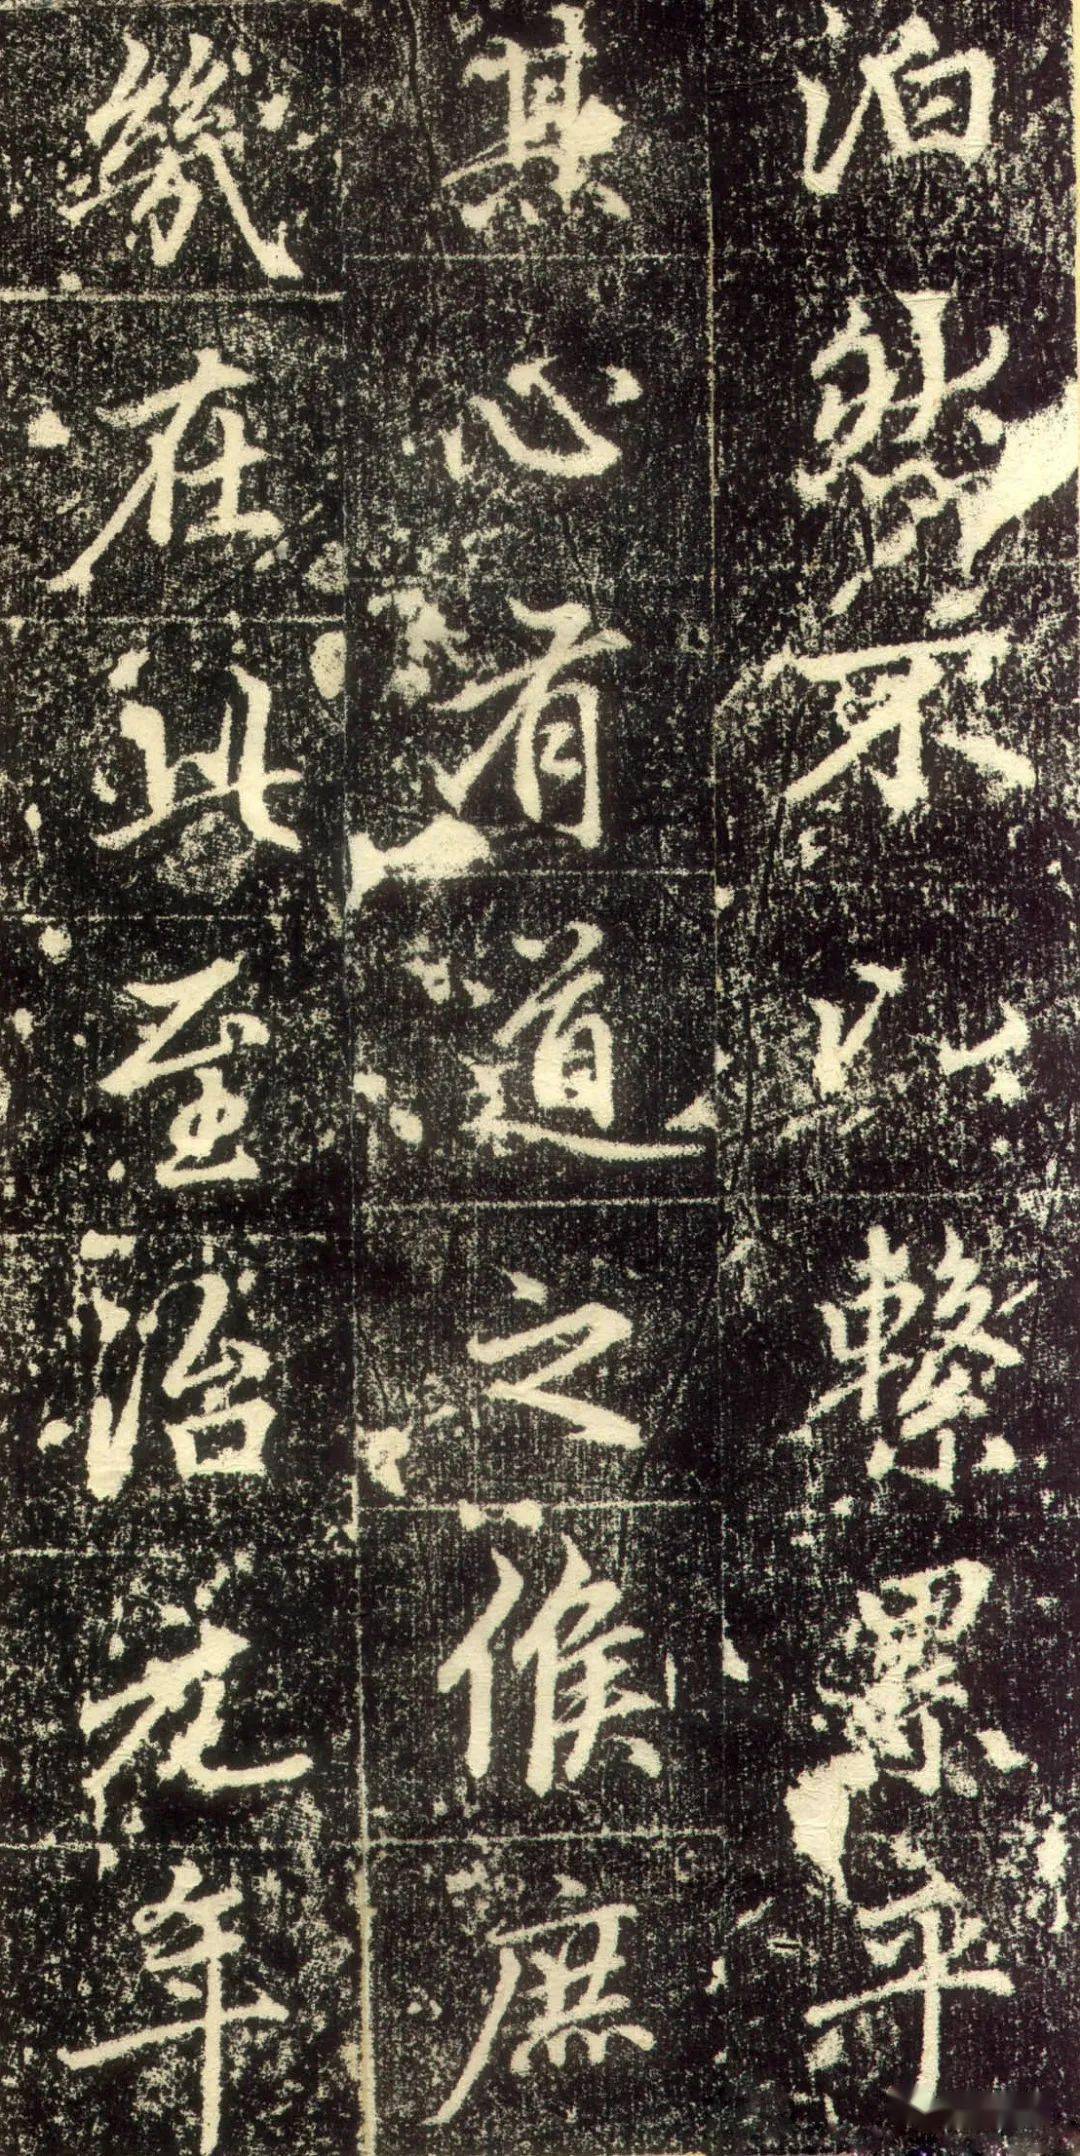 泊然不以繫累乎
其心者道之候庶
幾在此至治元年